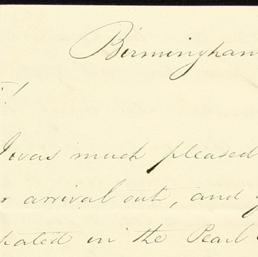 Birmingham
!
I was much pleased
arrival out, and
in the Pearl